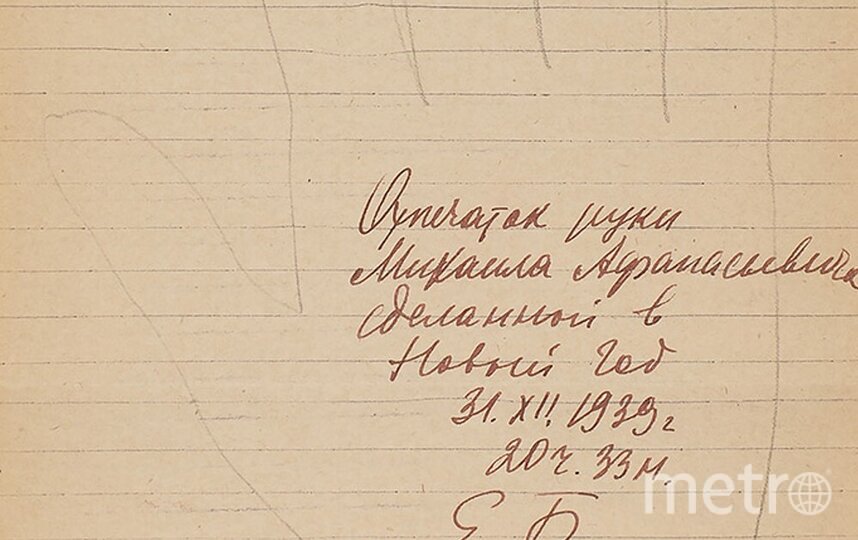 Отпечаток руки
Михаила Афанасьевича
сделанной в
Новый Год
31.XII.1939 г
20 ч. 33 м.
Е Б
metro